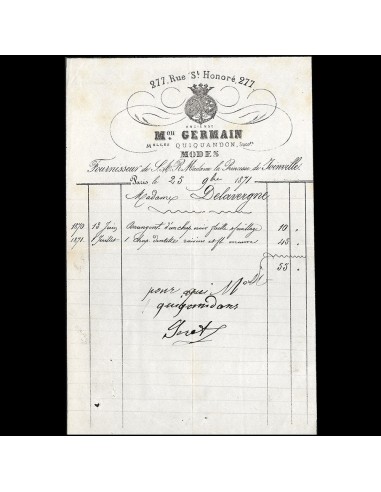 277, Rue St. Honoré, 277.
ANCIENNE
Mon GERMAIN
Melles QUIQUANDON, Succrs
MODES
Fournisseur de S.A.R. Madame la Princesse de Joinville.
Paris le 25 9bre 1871
Madame Delavergne
1870 13 Juin Arrangent d'un chap. noir paille 10 "
1871 Juillet 1 Chap. dentelle raisins et fl. mauve 45 "
55 "
pour aqui Melle
quiquandans